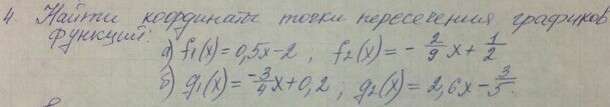 4. Найти координаты точки пересечения графиков
функций:
а) f₁(x)=0,5x-2 , f₂(x)= - 2/9 x + 1/2
б) g₁(x)= -3/4 x+0,2 ; g₂(x)= 2,6x - 3/5